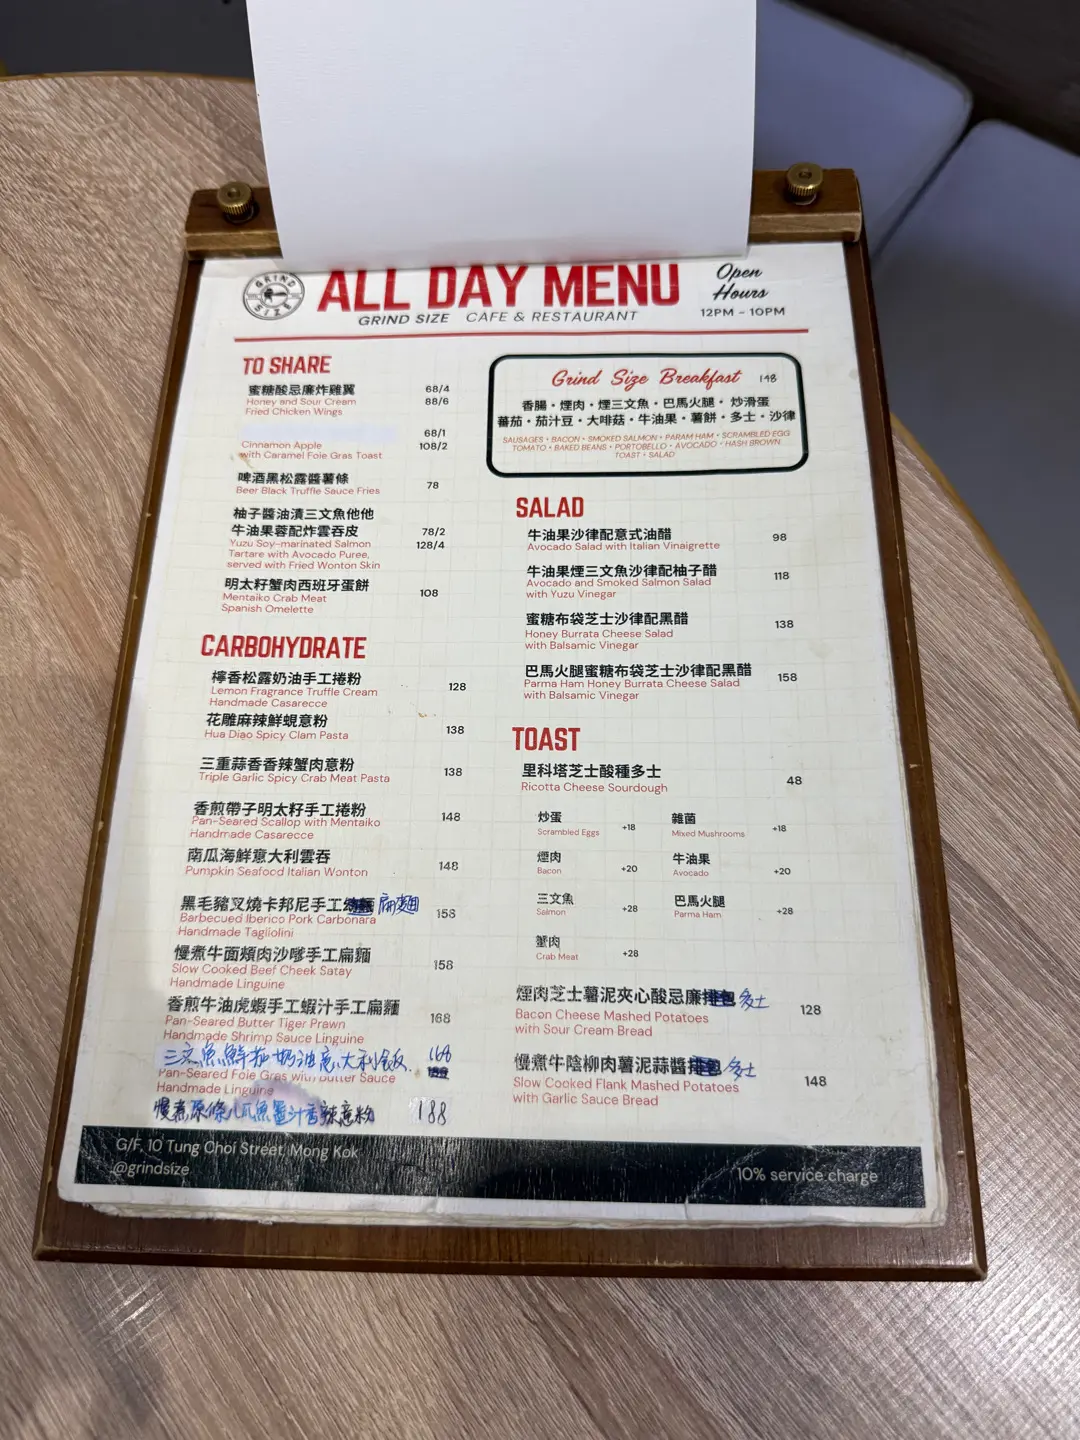 GRIND SIZE
ALL DAY MENU
GRIND SIZE CAFE & RESTAURANT
Open
Hours
12PM - 10PM
TO SHARE
蜜糖酸忌廉炸雞翼
Honey and Sour Cream
Fried Chicken Wings
68/4
88/6
Cinnamon Apple
with Caramel Foie Gras Toast
68/1
108/2
啤酒黑松露醬薯條
Beer Black Truffle Sauce Fries
78
柚子醬油漬三文魚他他
牛油果蓉配炸雲吞皮
Yuzu Soy-marinated Salmon
Tartare with Avocado Puree,
served with Fried Wonton Skin
78/2
128/4
明太籽蟹肉西班牙蛋餅
Mentaiko Crab Meat
Spanish Omelette
108
CARBOHYDRATE
檸香松露奶油手工捲粉
Lemon Fragrance Truffle Cream
Handmade Casarecce
128
花雕麻辣鮮蜆意粉
Hua Diao Spicy Clam Pasta
138
三重蒜香香辣蟹肉意粉
Triple Garlic Spicy Crab Meat Pasta
138
香煎帶子明太籽手工捲粉
Pan-Seared Scallop with Mentaiko
Handmade Casarecce
148
南瓜海鮮意大利雲吞
Pumpkin Seafood Italian Wonton
148
黑毛豬叉燒卡邦尼手工 扁麵
Barbecued Iberico Pork Carbonara
Handmade Tagliolini
158
慢煮牛面頰肉沙嗲手工扁麵
Slow Cooked Beef Cheek Satay
Handmade Linguine
158
香煎牛油虎蝦手工蝦汁手工扁麵
Pan-Seared Butter Tiger Prawn
Handmade Shrimp Sauce Linguine
168
三文魚鮮茄奶油意大利飯 168
Pan-Seared Foie Gras with Butter Sauce
Handmade Linguine
188
慢煮原條八爪魚墨汁香辣意粉 188
Grind Size Breakfast 148
香腸・煙肉・煙三文魚・巴馬火腿・炒滑蛋
蕃茄・茄汁豆・大啡菇・牛油果・薯餅・多士・沙律
SAUSAGES • BACON • SMOKED SALMON • PARAM HAM • SCRAMBLED EGG
TOMATO • BAKED BEANS • PORTOBELLO • AVOCADO • HASH BROWN
TOAST • SALAD
SALAD
牛油果沙律配意式油醋
Avocado Salad with Italian Vinaigrette
98
牛油果煙三文魚沙律配柚子醋
Avocado and Smoked Salmon Salad
with Yuzu Vinegar
118
蜜糖布袋芝士沙律配黑醋
Honey Burrata Cheese Salad
with Balsamic Vinegar
138
巴馬火腿蜜糖布袋芝士沙律配黑醋
Parma Ham Honey Burrata Cheese Salad
with Balsamic Vinegar
158
TOAST
里科塔芝士酸種多士
Ricotta Cheese Sourdough
48
炒蛋
Scrambled Eggs
+18
雜菌
Mixed Mushrooms
+18
煙肉
Bacon
+20
牛油果
Avocado
+20
三文魚
Salmon
+28
巴馬火腿
Parma Ham
+28
蟹肉
Crab Meat
+28
煙肉芝士薯泥夾心酸忌廉排包 多士
Bacon Cheese Mashed Potatoes
with Sour Cream Bread
128
慢煮牛陰柳肉薯泥蒜醬排包 多士
Slow Cooked Flank Mashed Potatoes
with Garlic Sauce Bread
148
G/F, 10 Tung Choi Street, Mong Kok
@grindsize
10% service charge